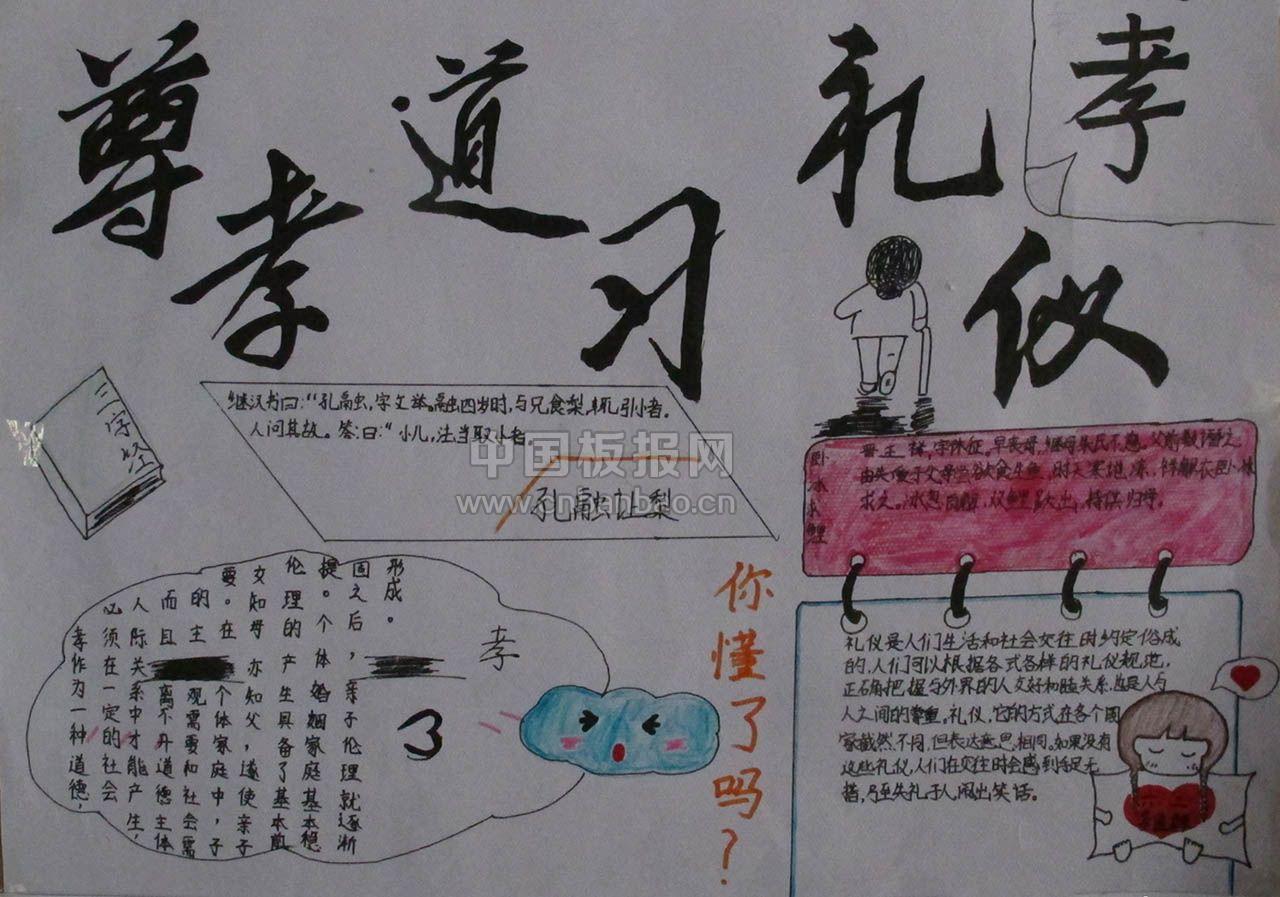 尊孝道习礼仪
孝
三字经
继汉书曰：“孔融，字文举。融四岁时，与兄食梨，辄引小者。
人问其故。答曰：“小儿，法当取小者。
孔融让梨
中国板报网
www.cnbanbao.cn
卧冰求鲤
晋王祥，字休征。早丧母，继母朱氏不慈。父前数谮之，
由失爱于父母
欲食生鱼，时天寒地冻，祥解衣卧冰
求之。冰忽自解，双鲤跃出，持供归母。
孝
孝作为一种道德，
必须在一定的社会
人际关系中才能产生，
而且
离不开道德主体
的主观需要和社会需
要。在个体家庭中，子
交知母亦知父，遂使亲子
伦理的产生具备了基本前
提。个体婚姻家庭基本稳
固之后，亲子伦理就逐渐
形成。
你懂了吗？
礼仪是人们生活和社会交往时约定俗成
的，人们可以根据各式各样的礼仪规范，
正确把握与外界的人交好和睦关系，这是人与
人之间的尊重。礼仪，它的方式在各个国
家截然不同，但表达意思相同。如果没有
这些礼仪，人们在交往时会感到手足无
措，乃至失礼于人，闹出笑话。